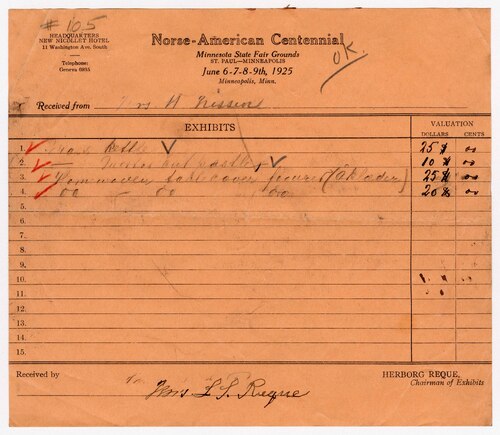 # 105
HEADQUARTERS
NEW NICOLLET HOTEL
11 Washington Ave. South
Telephone:
Geneva 6935
Norse-American Centennial
Minnesota State Fair Grounds
ST. PAUL—MINNEAPOLIS
June 6-7-8-9th, 1925
Minneapolis, Minn.
OK.
Received from Mrs H Nissen
EXHIBITS
VALUATION
DOLLARS CENTS
1. Kettle 25 00
2. 10 00
3. Homwoven table cover 25 00
4. 00 00 00 20 00
5.
6.
7.
8.
9.
10.
11.
12.
13.
14.
15.
Received by Mrs L. S. Reque
HERBORG REQUE,
Chairman of Exhibits